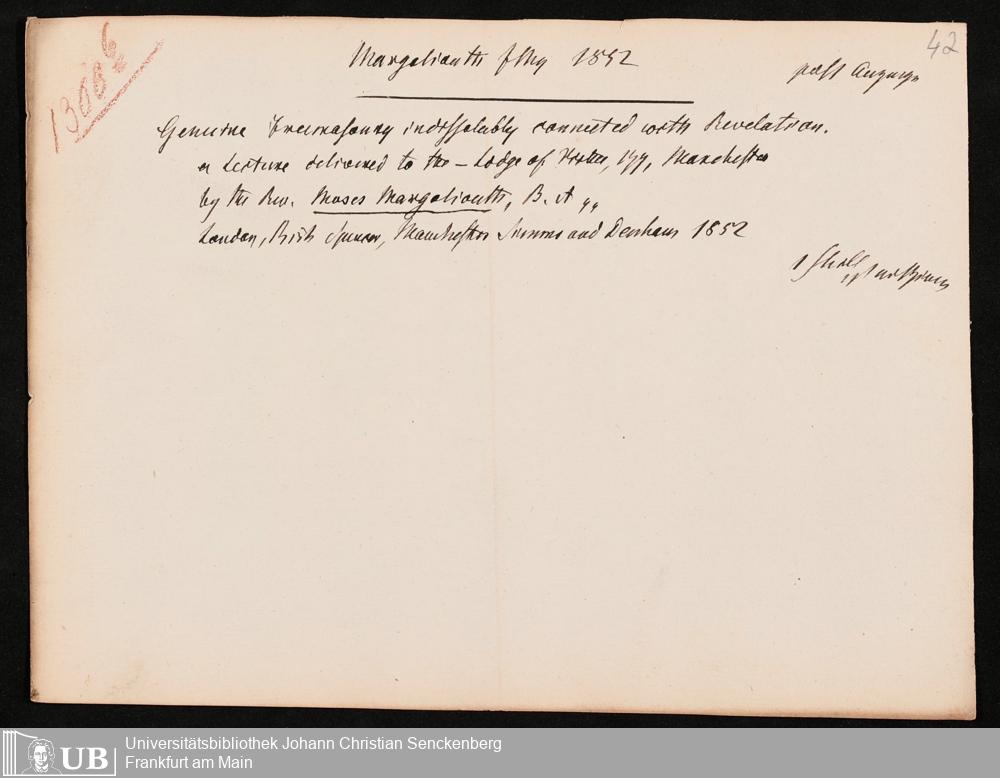 42
1300 6
Margoliouth 1852
Genuine Freemasonry indissolubly connected with Revelation.
a Lecture delivered to the – Lodge of Virtue, 177, Manchester
by the Rev. Moses Margoliouth, B. A
London, Rich Spencer, Manchester Simms and Denham 1852
UB
Universitätsbibliothek Johann Christian Senckenberg
Frankfurt am Main